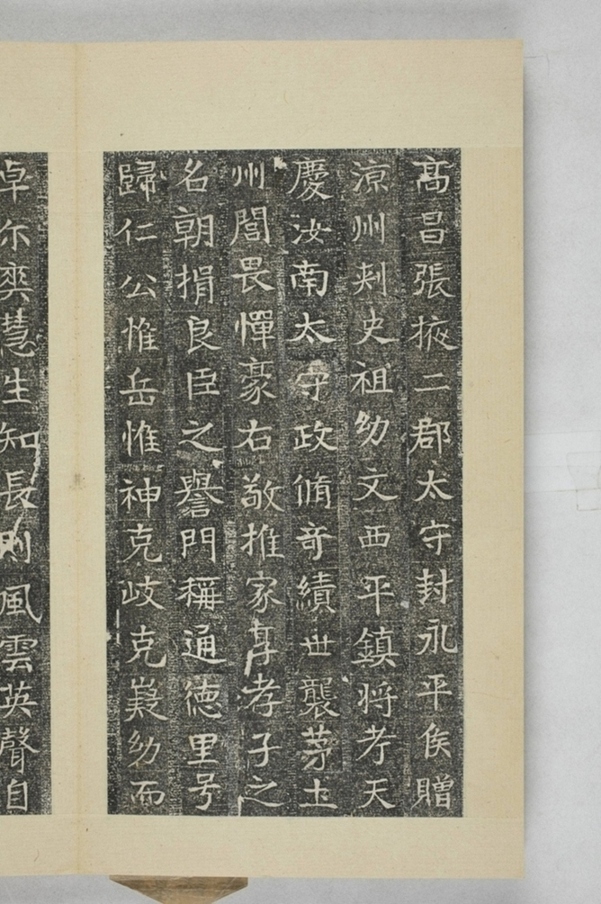 髙昌張掖二郡太守封永平侯贈
涼州刾史祖幼文西平鎮將考天
慶汝南太守政脩竒績世襲茅土
州閭畏憚豪右敬推家享孝子之
名朝捐良臣之譽門稱通徳里号
歸仁公惟岳惟神克岐克嶷幼而
卓尔爽慧生知長則風雲英聲自